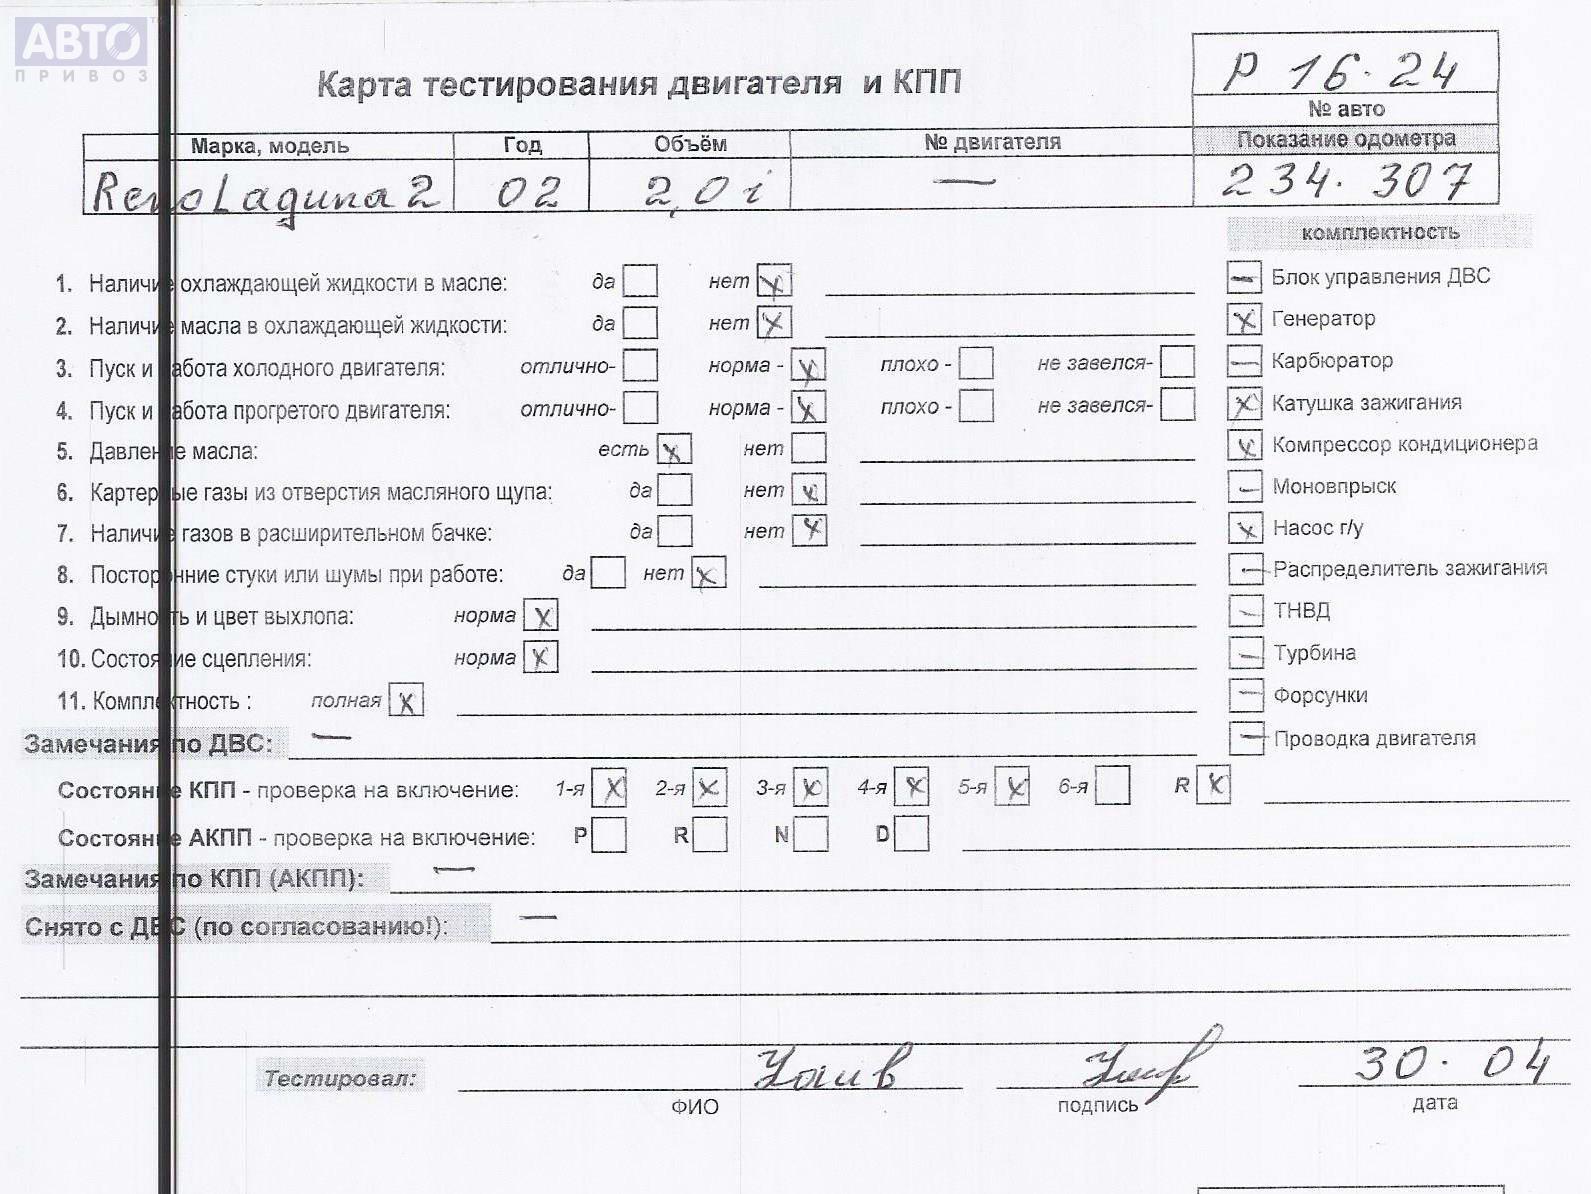 АВТО
ПРИВОЗ
Карта тестирования двигателя и КПП
P 16·24
№ авто
Марка, модель Год Объём № двигателя Показание одометра
Reno Laguna 2 02 2,0 i — 234.307
комплектность
1. Наличие охлаждающей жидкости в масле: да нет x
2. Наличие масла в охлаждающей жидкости: да нет x
3. Пуск и работа холодного двигателя: отлично- норма - x плохо - не завелся-
4. Пуск и работа прогретого двигателя: отлично- норма - x плохо - не завелся-
5. Давление масла: есть x нет
6. Картерные газы из отверстия масляного щупа: да нет x
7. Наличие газов в расширительном бачке: да нет x
8. Посторонние стуки или шумы при работе: да нет x
9. Дымность и цвет выхлопа: норма x
10. Состояние сцепления: норма x
11. Комплектность : полная x
— Блок управления ДВС
x Генератор
— Карбюратор
x Катушка зажигания
x Компрессор кондиционера
— Моновпрыск
x Насос г/у
— Распределитель зажигания
— ТНВД
— Турбина
— Форсунки
— Проводка двигателя
Замечания по ДВС: —
Состояние КПП - проверка на включение: 1-я x 2-я x 3-я x 4-я x 5-я x 6-я R x
Состояние АКПП - проверка на включение: P R N D
Замечания по КПП (АКПП): —
Снято с ДВС (по согласованию!): —
Тестировал: 30.04
ФИО подпись дата